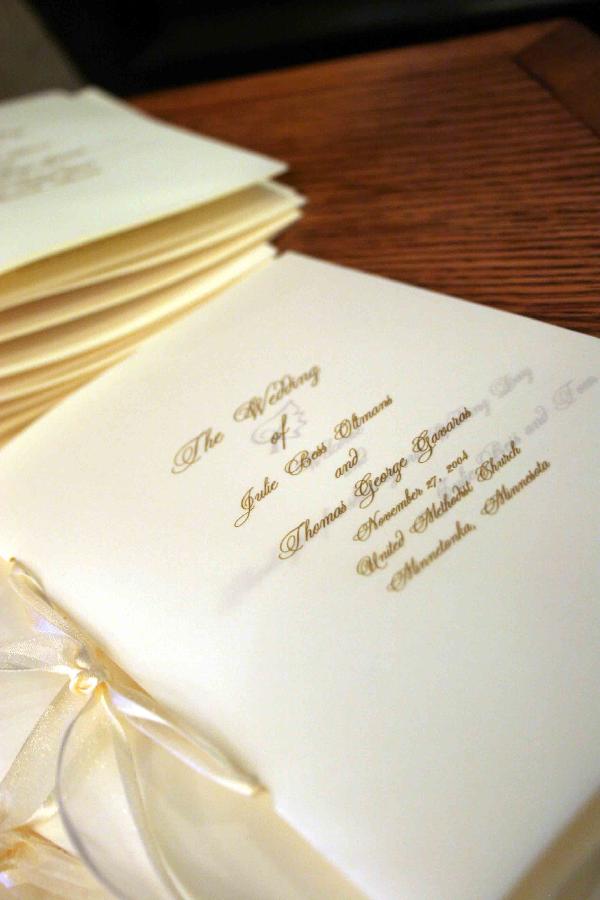 The Wedding
of
Julie Bess Oltmans
and
Thomas George Gavaras
November 27, 2004
United Methodist Church
Minnetonka, Minnesota